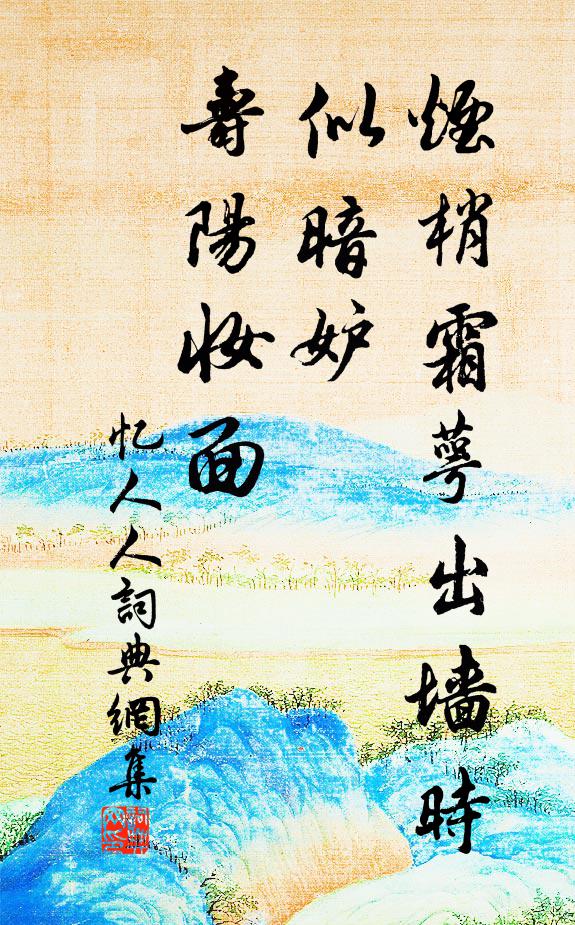 煙梢霜萼出墙時
似暗妒
壽陽妝面
忆人人詞典網集